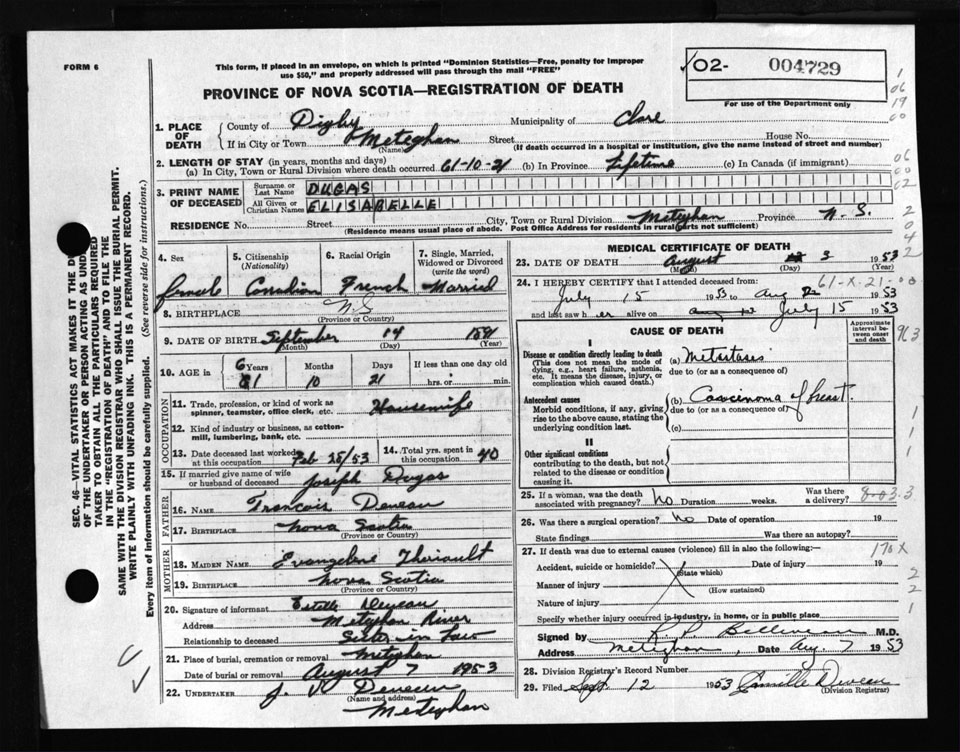 FORM 6
This form, if placed in an envelope, on which is printed "Dominion Statistics—Free, penalty for improper
use $50," and properly addressed will pass through the mail "FREE"
PROVINCE OF NOVA SCOTIA—REGISTRATION OF DEATH
02- 004729
For use of the Department only
1. PLACE OF DEATH
County of Digby Municipality of Clare
If in City or Town Meteghan Street House No.
(Name) (If death occurred in a hospital or institution, give the name instead of street and number)
2. LENGTH OF STAY (in years, months and days)
(a) In City, Town or Rural Division where death occurred 61-10-21 (b) In Province Lifetime (c) In Canada (if immigrant)
3. PRINT NAME OF DECEASED
Surname or Last Name DUGAS
All Given or Christian Names ELISABELLE
RESIDENCE No. Street City, Town or Rural Division Meteghan Province N.S.
(Residence means usual place of abode. Post Office Address for residents in rural parts not sufficient)
4. Sex
female
5. Citizenship
(Nationality)
Canadian
6. Racial Origin
French
7. Single, Married, Widowed or Divorced
(write the word)
Married
8. BIRTHPLACE N.S
(Province or Country)
9. DATE OF BIRTH September 14 1891
(Month) (Day) (Year)
10. AGE in Years Months Days If less than one day old
61 10 21 hrs. or min.
OCCUPATION
11. Trade, profession, or kind of work as
spinner, teamster, office clerk, etc. Housewife
12. Kind of industry or business, as cotton-
mill, lumbering, bank, etc.
13. Date deceased last worked at this occupation Feb 28/53
14. Total yrs. spent in this occupation 40
15. If married give name of wife
or husband of deceased Joseph Dugas
FATHER
16. Name Francois Deveau
17. Birthplace Nova Scotia
(Province or Country)
MOTHER
18. MAIDEN NAME Evangeline Thériault
19. BIRTHPLACE Nova Scotia
(Province or Country)
20. Signature of informant Estelle Deveau
Address Meteghan River
Relationship to deceased Sister in Law
21. Place of burial, cremation or removal Meteghan
Date of burial or removal August 7 1953
22. UNDERTAKER J. V. Deveau
(Name and address)
Meteghan
MEDICAL CERTIFICATE OF DEATH
23. DATE OF DEATH August 3 1953
(Month) (Day) (Year)
61-X-21-00
24. I HEREBY CERTIFY that I attended deceased from:
July 15 1953 to Aug 1953
and last saw her alive on July 15 1953
CAUSE OF DEATH
Approximate interval between onset and death
I
Disease or condition directly leading to death
(This does not mean the mode of
dying, e.g., heart failure, asthenia,
etc. It means the disease, injury, or
complication which caused death.)
(a) Metastases
due to (or as a consequence of)
Antecedent causes
Morbid conditions, if any, giving
rise to the above cause, stating the
underlying condition last.
(b) Carcinoma of breast.
due to (or as a consequence of)
(c)
II
Other significant conditions
contributing to the death, but not
related to the disease or condition
causing it.
25. If a woman, was the death
associated with pregnancy? No Duration weeks. Was there a delivery? 8-03-3
26. Was there a surgical operation? No Date of operation 19
State findings Was there an autopsy?
27. If death was due to external causes (violence) fill in also the following:—
170X
Accident, suicide or homicide? Date of injury 19
(State which)
Manner of injury
(How sustained)
Nature of injury
Specify whether injury occurred in industry, in home, or in public place
Signed by Belliveau M.D.
Address Meteghan, Date Aug. 7 1953
28. Division Registrar's Record Number
29. Filed Sept. 12 1953 Camille Deveau
(Division Registrar)
SEC. 46—VITAL STATISTICS ACT MAKES IT THE
OF THE UNDERTAKER OR PERSON ACTING AS
TAKER TO OBTAIN ALL THE PARTICULARS REQUIRED
IN THE "REGISTRATION OF DEATH" AND TO FILE THE
SAME WITH THE DIVISION REGISTRAR WHO SHALL ISSUE THE BURIAL PERMIT.
WRITE PLAINLY WITH UNFADING INK. THIS IS A PERMANENT RECORD.
Every item of information should be carefully supplied. (See reverse side for instructions.)